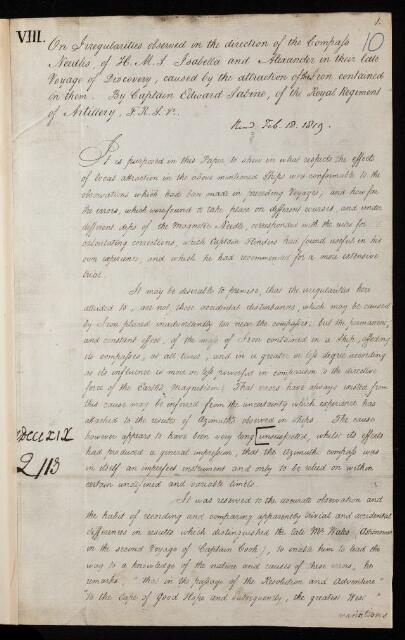 1.
VIII.
10
On Irregularities observed in the direction of the Compass
Needles, of H.M.S Isabella and Alexander in their late
Voyage of Discovery, caused by the attraction of the Iron contained
in them. By Captain Edward Sabine, of the Royal Regiment
of Artillery, F.R.S
Read Feb. 18. 1819.
It is purposed in this Paper to shew in what respects the effects
of local attraction in the above mentioned Ships were conformable to the
observations which had been made in preceding Voyages; and how far
the errors, which were found to take place on different courses, and under
different dips of the Magnetic Needle, corresponded with the rules for
calculating corrections, which Captain Flinders has found useful in his
own experience, and which he had recommended for a more extensive
trial.
It may be desirable to premise, that the irregularities here
alluded to, are not, those accidental disturbances, which may be caused
by Iron placed inadvertently too near the compasses; but the permanent,
and constant effect, of the mass of Iron contained in a Ship, affecting
its compasses, at all times, and in a greater or less degree according
as its influence is more or less powerful in comparison to the directive
force of the Earth's Magnetism; That errors have always existed from
this cause may be inferred from the uncertainty which experience has
attached to the results of Azimuths observed in Ships. The cause
however appears to have been very long unsuspected, whilst its effects
had produced a general impression, that the Azimuth compass was
in itself an imperfect instrument and only to be relied on within
certain undefined and variable limits.
MDCCCXIX
2/113
It was reserved to the accurate observation and
the habit of recording and comparing apparently trivial and accidental
differences in results which distinguished the late Mr Wales Astronomer
in the second Voyage of Captain Cook, to enable him to lead the
way to a knowledge of the nature and causes of these errors, he
remarks, "that in the passage of the Resolution and Adventure"
"to the Cape of Good Hope and subsequently, the greatest West"
variations